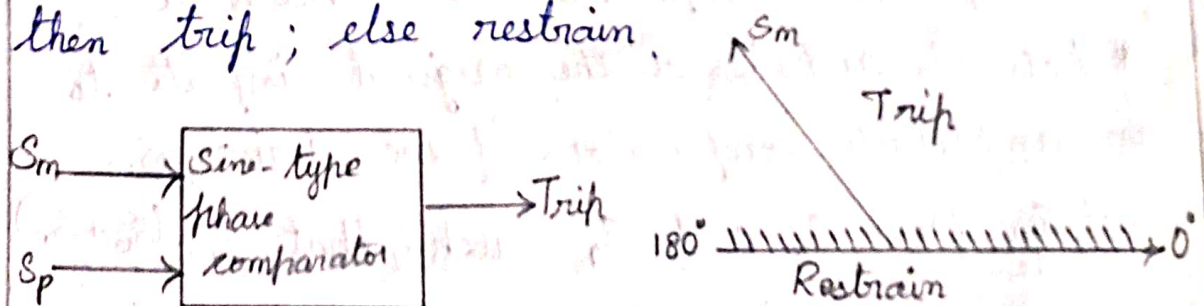 then trip ; else restrain.
Sm
Trip
Sm
Sine-type
phase
comparator
Trip
Sp
180° 0°
Restrain